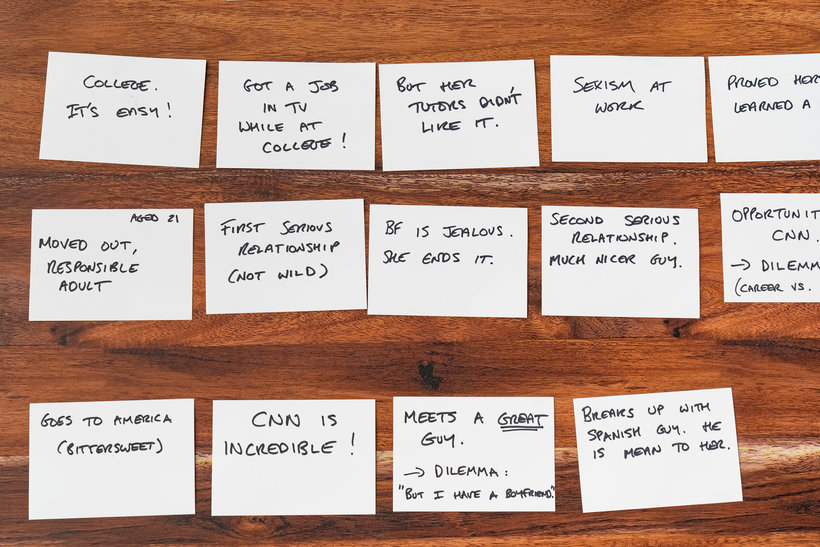 COLLEGE.
IT'S EASY!
GOT A JOB
IN TV
WHILE AT
COLLEGE!
BUT HER
TUTORS DIDN'T
LIKE IT.
SEXISM AT
WORK
PROVED
LEARNED A
AGED 21
MOVED OUT,
RESPONSIBLE
ADULT
FIRST SERIOUS
RELATIONSHIP
(NOT WILD)
BF IS JEALOUS.
SHE ENDS IT.
SECOND SERIOUS
RELATIONSHIP.
MUCH NICER GUY.
CNN.
→
(CAREER VS.
GOES TO AMERICA
(BITTERSWEET)
CNN IS
INCREDIBLE!
MEETS A GREAT
GUY.
→ DILEMMA:
"BUT I HAVE A BOYFRIEND."
BREAKS UP WITH
SPANISH GUY. HE
IS MEAN TO HER.